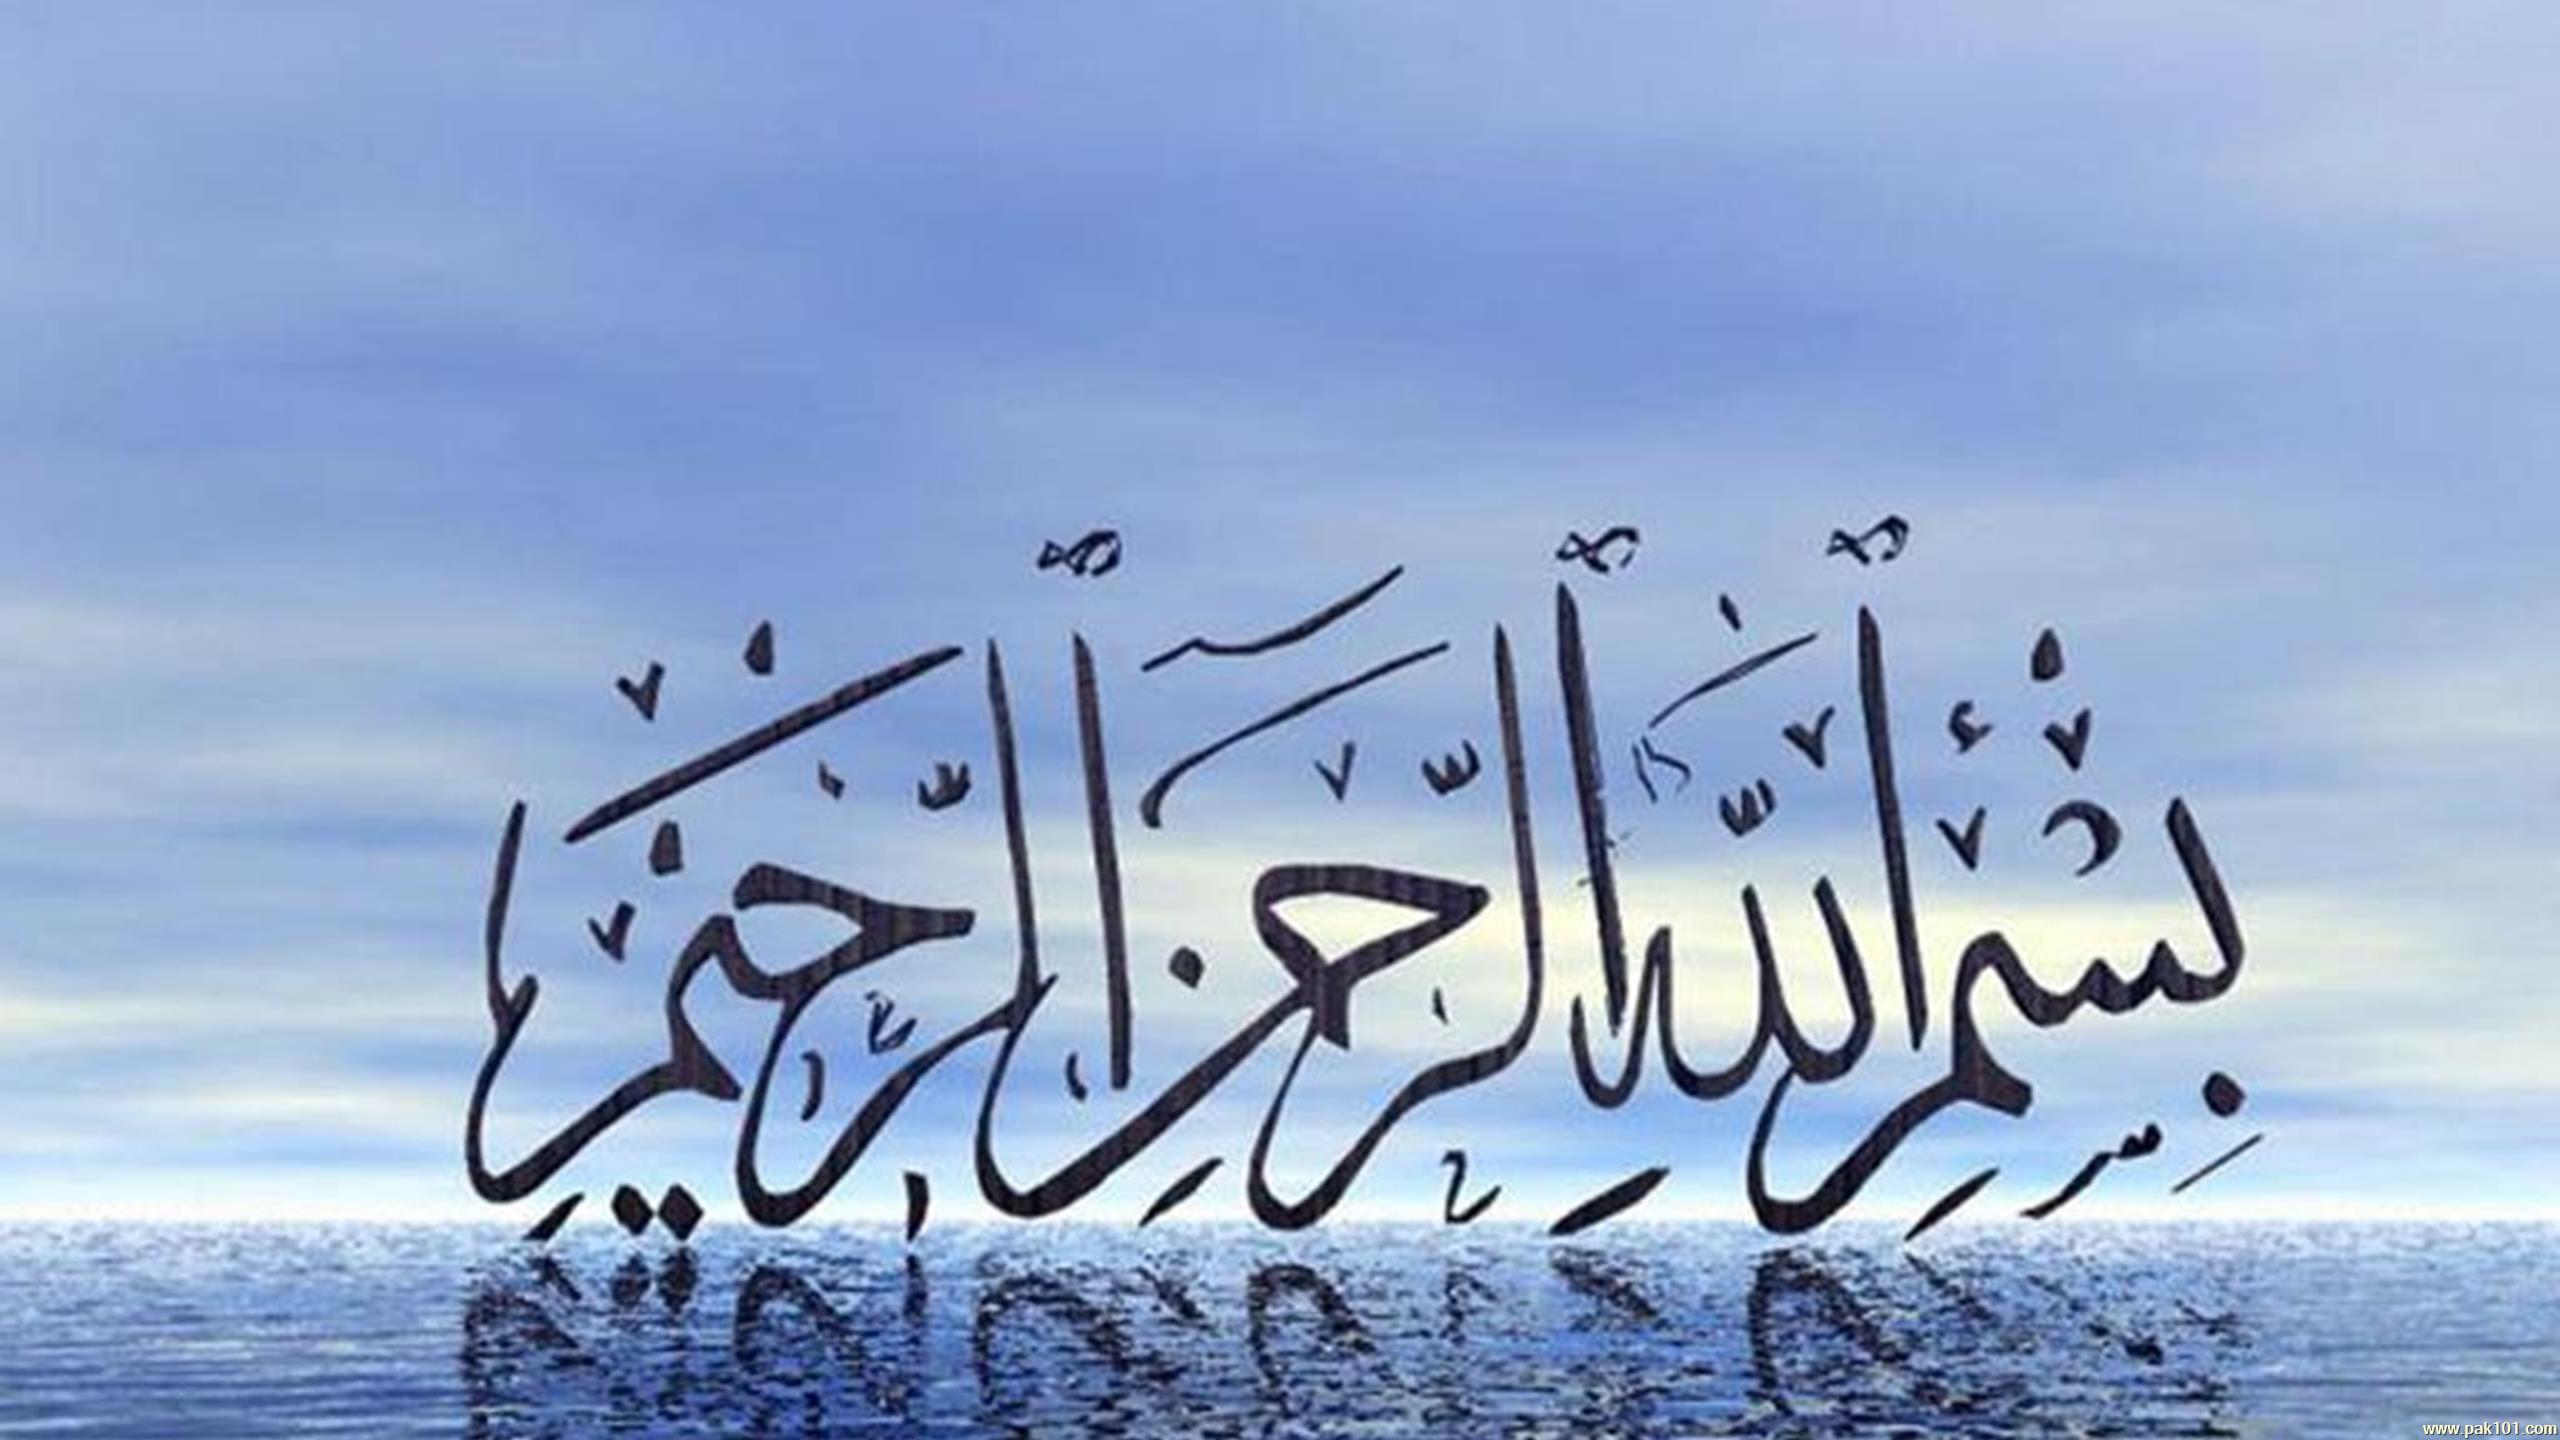 بسم الله الرحمن الرحيم
www.pak101.com